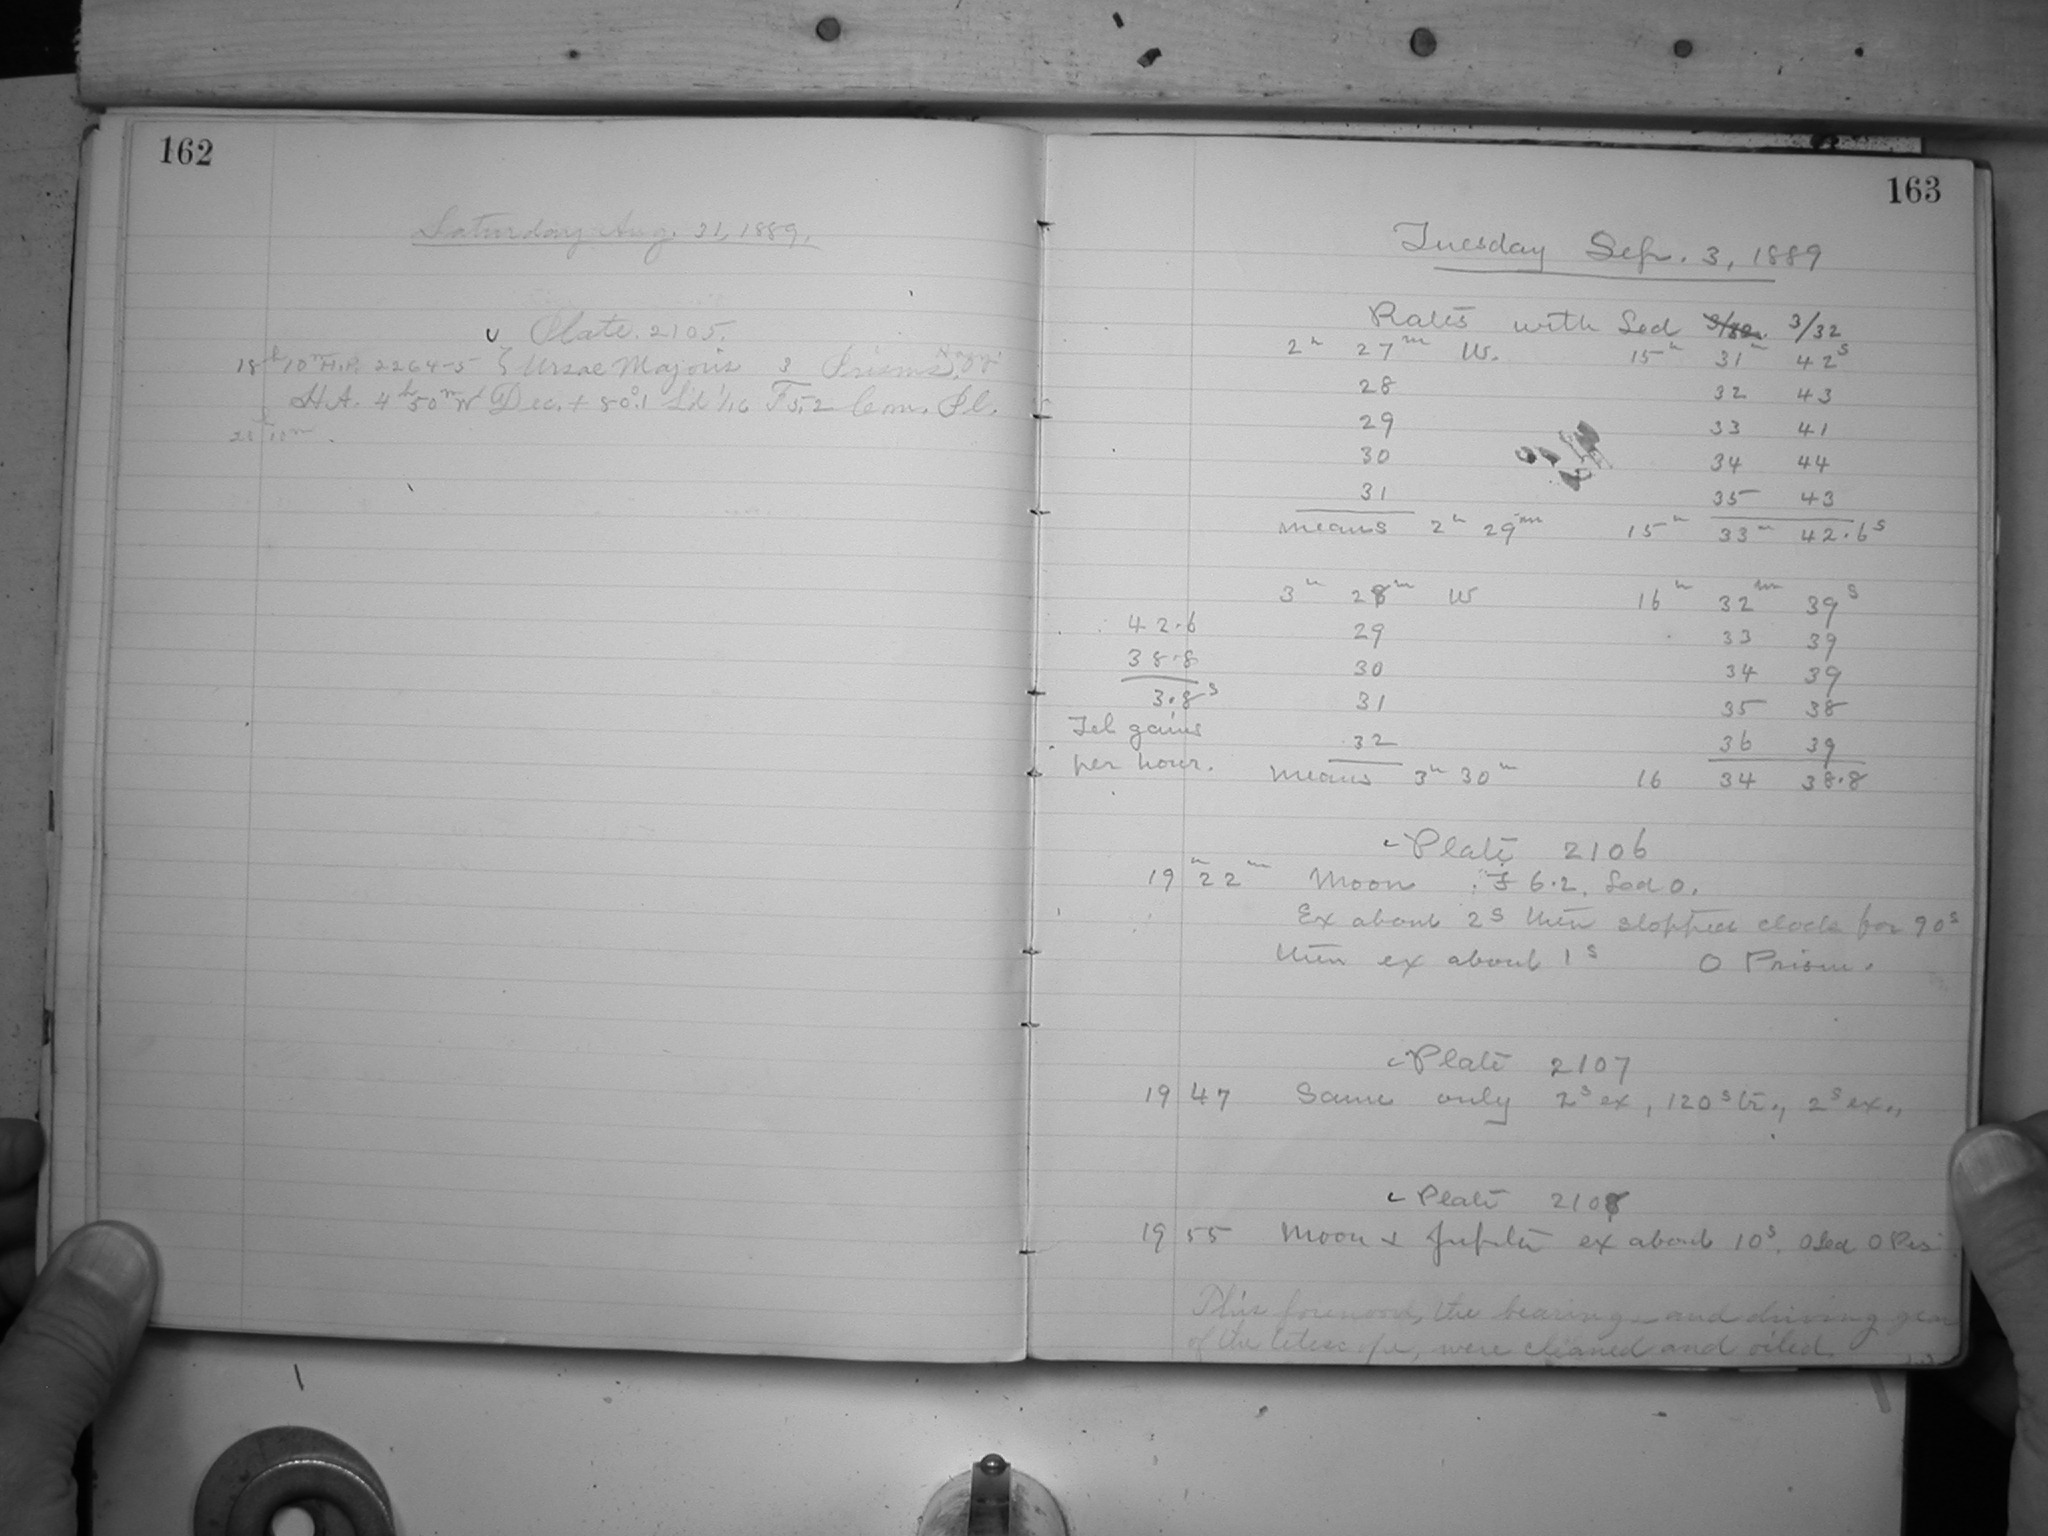 162
Saturday Aug. 31, 1889.
Plate 2105.
18h 10m H.P. 2264-5 ζ Ursae Majoris 3 Prisms
H.A. 4h 50m W Dec. + 80.1 S'd 1/16 F 5.2 Com. Pl.
10m.
163
Tuesday Sep. 3, 1889
Rates with Led 3/32
2h 27m W. 15h 31m 42s
28 32 43
29 33 41
30 34 44
31 35 43
means 2h 29m 15h 33m 42.6s
3h 28m W 16h 32m 39s
42.6 29 33 39
38.8 30 34 39
3.8s 31 35 38
Tel gains 32 36 39
per hour. means 3h 30m 16 34 38.8
Plate 2106
19h 22m Moon F 6.2. Led 0.
Ex about 2s then stopped clock for 90s
then ex about 1s 0 Prism.
Plate 2107
19 47 Same only 2s ex, 120s tr., 2s ex.,
Plate 2108
19 55 Moon & Jupiter ex about 10s. 0 Led 0 Pris
This forenoon, the bearings and driving gear
of the telescope, were cleaned and oiled.